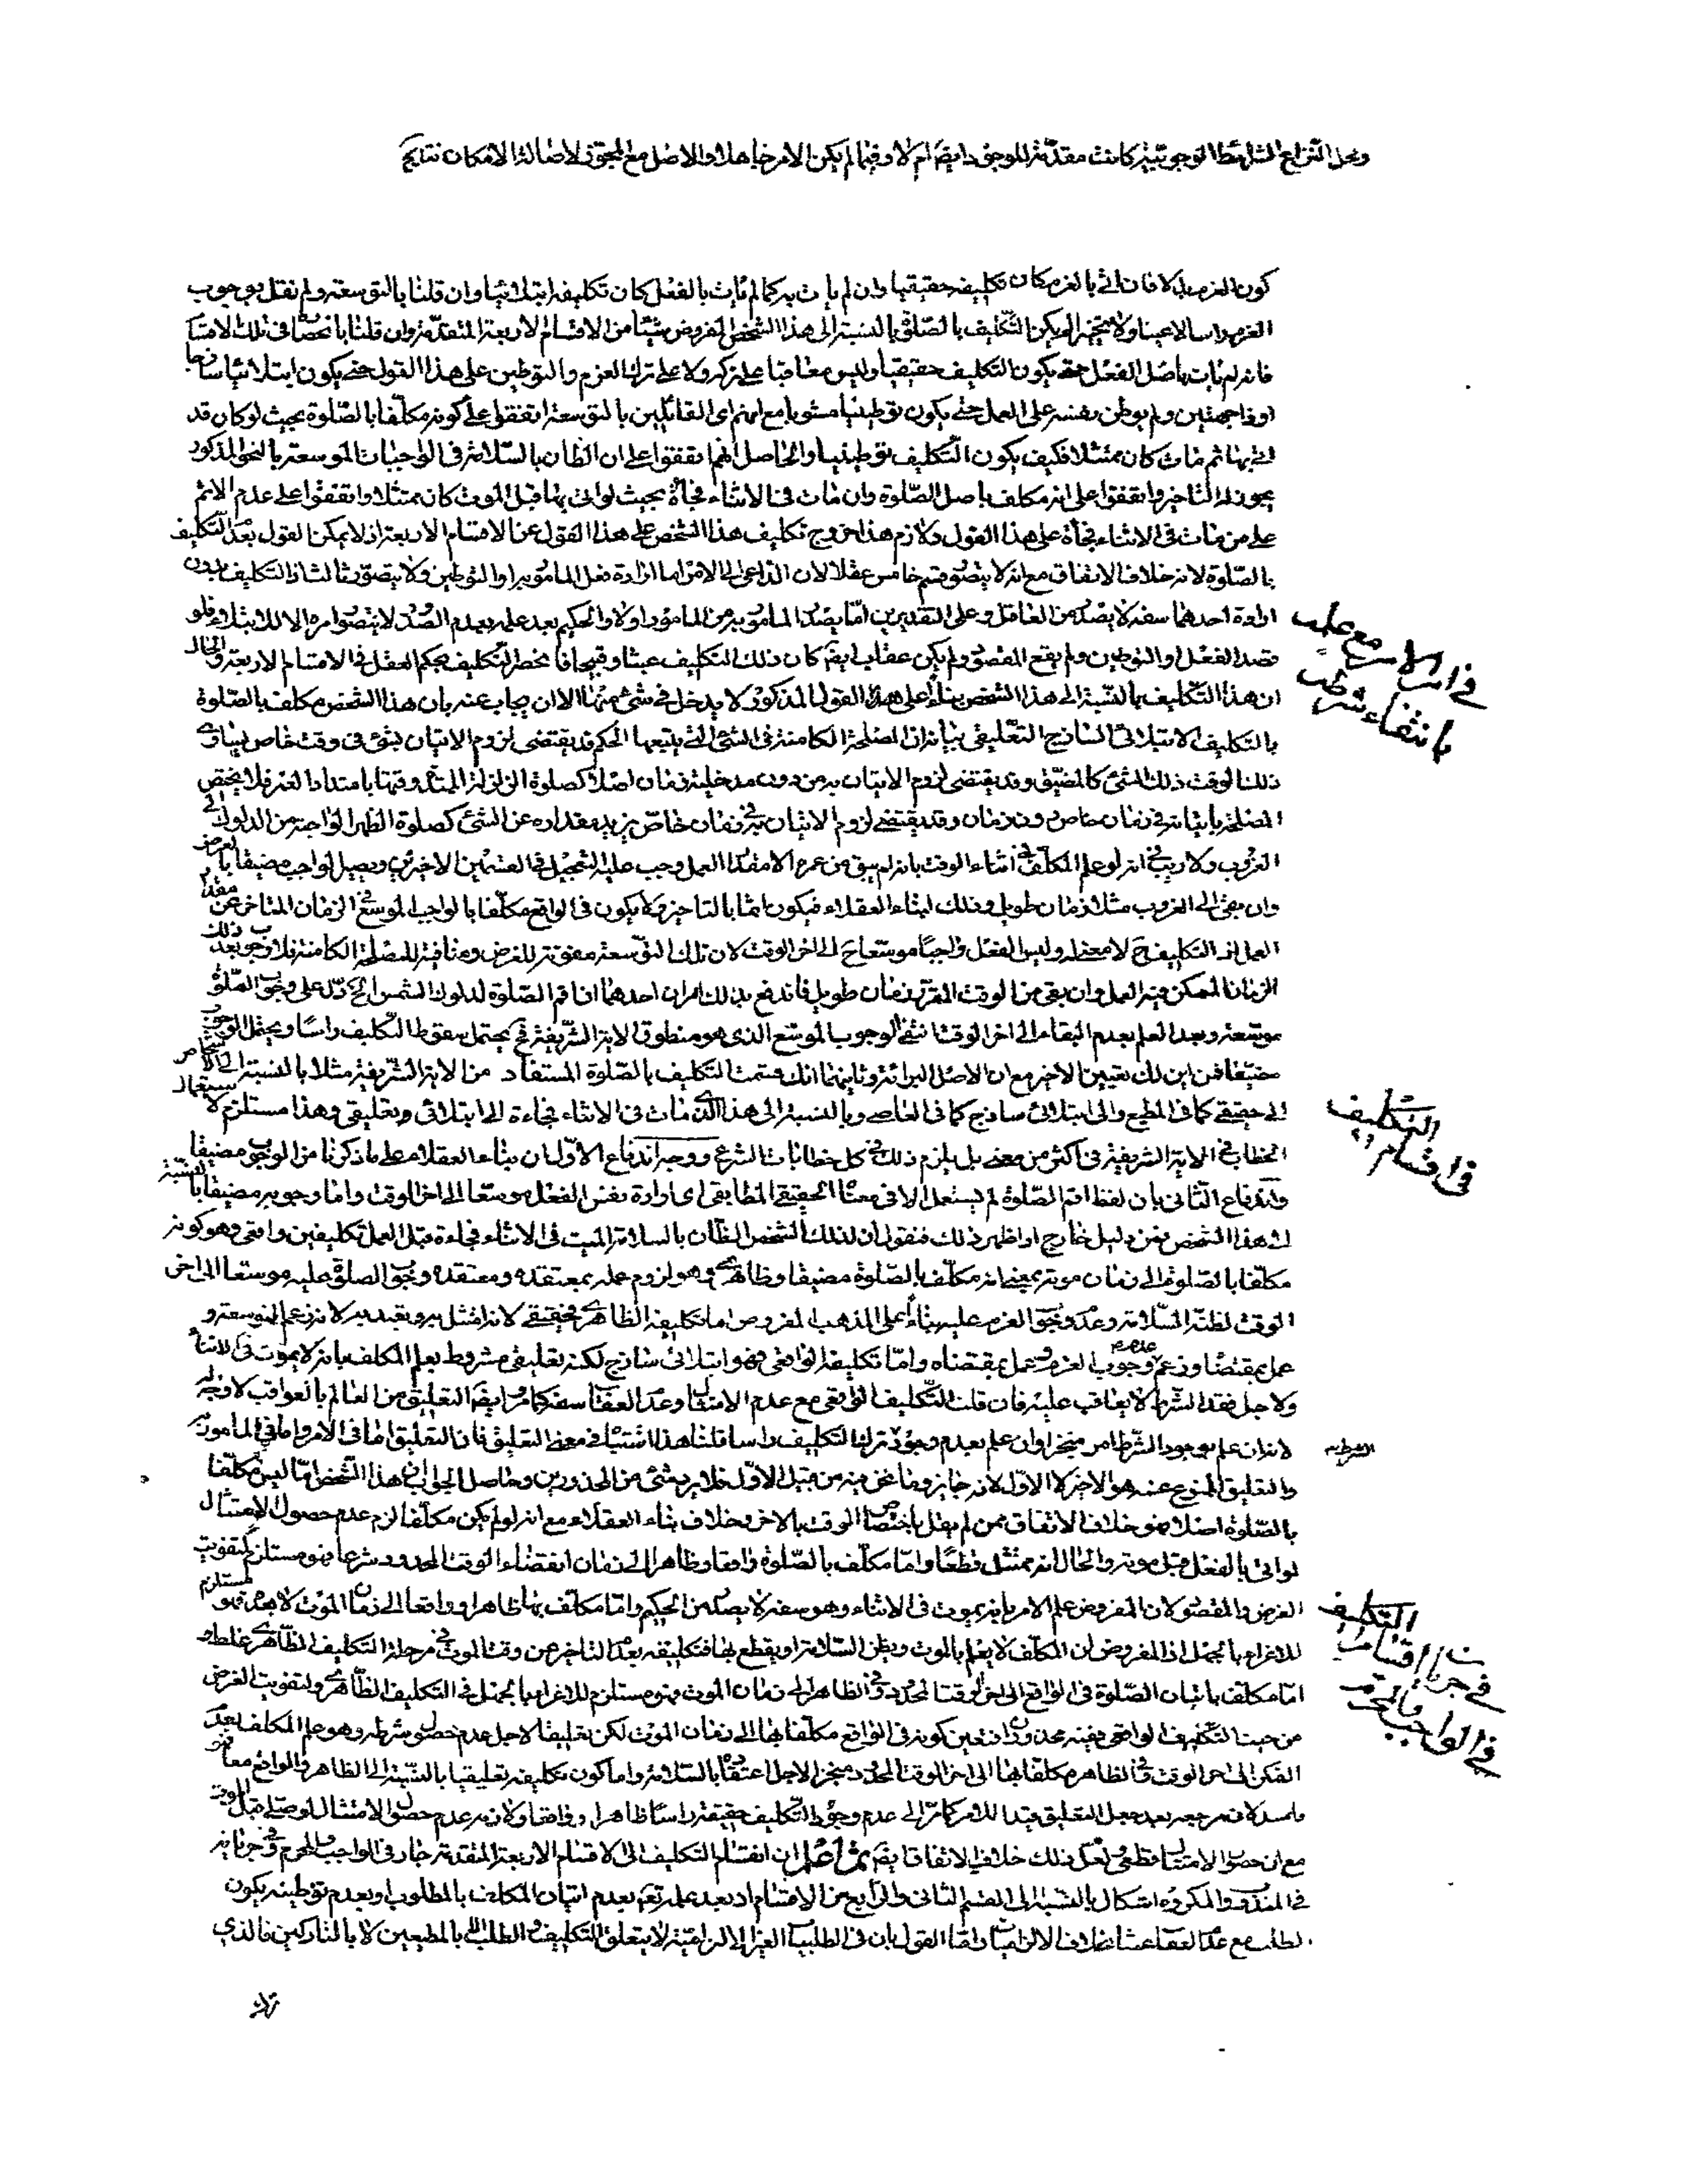 ومحل النزاع الشرائط الوجوبية كانت مقدمة للوجود ايضا ام لا وفيما لم يكن الامر جاهلا والاصل مع المجوز لاصالة الامكان نتايج
كون العزم بدلا فان اتى بالعزم كان تكليفه حقيقيا وان لم يات به كما لم يات بالفعل كان تكليفه ابتلائيا وان قلنا بالتوسعة ولم نقل بوجوب
العزم راسا لا عينا ولا تخييرا لم يكن التكليف بالصلوة بالنسبة الى هذا الشخص المفروض شيئا من الاقسام الاربعة المتقدمة وان قلنا بانحصار في تلك الاقسام
فانه لم يات باصل الفعل حتى يكون التكليف حقيقيا وليس معاقبا على تركه ولا على ترك العزم والتوطين على هذا القول حتى يكون ابتلائيا ساذجا
او ذا جهتين ولم يوطن نفسه على العمل حتى يكون توطينيا مشوبا مع انهم اى القائلين بالتوسعة اتفقوا على كونه مكلفا بالصلوة بحيث لو كان قد
اتى بها ثم مات كان ممتثلا فكيف يكون التكليف توطينيا والحاصل انهم اتفقوا على ان الظان بالسلامة في الواجبات الموسعة بالنحو المذكور
يجوز له التاخير واتفقوا على انه مكلف باصل الصلوة وان مات في الاثناء فجأة بحيث لو اتى بها قبل الموت كان ممتثلا واتفقوا على عدم الاثم
على من مات في الاثناء فجأة على هذا القول ولازم هذا خروج تكليف هذا الشخص على هذا القول عن الاقسام الاربعة اذ لا يمكن القول بعدم التكليف
بالصلوة لانه خلاف الاتفاق مع انه لا يتصور قسم خامس عقلا لان الداعى الى الامر اما ارادة فعل المامور به او التوطين ولا يتصور ثالث اذ التكليف بدون
ارادة احدهما سفه لا يصدر من العاقل وعلى التقديرين اما يصدر المامور به من المامور او لا والحكيم بعد علمه بعدم الصدور لا يتصور امره الا للابتلاء فلو
قصد الفعل او التوطين ولم يقع المقصود ولم يكن عقاب ايضا كان ذلك التكليف عبثا وقبيحا فانحصر التكليف بحكم العقل في الاقسام الاربعة والحال
ان هذا التكليف بالنسبة الى هذا الشخص بناء على هذا القول المذكور لا يدخل في شئ منها الا ان يجاب عنه بان هذا الشخص مكلف بالصلوة
بالتكليف الابتلائى الساذج التعليقى بيانه ان المصلحة الكامنة في الشئ التى يتبعها الحكم قد يقتضى لزوم الاتيان بشئ في وقت خاص يساوى
ذلك الوقت ذلك الشئ كالمضيق وقد يقتضى لزوم الاتيان به من دون مدخلية زمان اصلا كصلوة الزلزلة الممتد وقتها بامتداد العمر فلا يختص
المصلحة باتيانه في زمان خاص دون زمان وقد يقتضى لزوم الاتيان به في زمان خاص يزيد مقداره عن الشئ كصلوة الظهر الواجبة من الدلوك الى
الغروب ولا ريب في انه لو علم المكلف في اثناء الوقت بانه لم يبق من عمره الا مقدار العمل وجب عليه التعجيل في القسمين الاخيرين ويصير الواجب مضيقا بالعرض
وان بقى الى الغروب مثلا زمان طويل وذلك لبناء العقلاء فيكون اثما بالتاخير ولا يكون في الواقع مكلفا بالواجب الموسع في الزمان المتاخر عن مقدار
العمل اذ التكليف ح لا معنى له وليس الفعل واجبا موسعا ح الى اخر الوقت لان تلك التوسعة مفوتة للغرض ومنافية للمصلحة الكامنة فلا وجوب بعد ذلك
الزمان الممكن فيه العمل وان بقى من الوقت المقرر زمان طويل فاندفع بذلك امران احدهما ان اقم الصلوة لدلوك الشمس الخ دل على وجوب الصلوة
موسعة وبعد العلم بعدم البقاء الى اخر الوقت انتفى الوجوب الموسع الذى هو منطوق الاية الشريفة فح يحتمل سقوط التكليف راسا ويحتمل الوجوب
مضيقا فمن اين لك تعيين الاخير مع ان الاصل البرائة وثانيهما انك قسمت التكليف بالصلوة المستفاد من الاية الشريفة مثلا بالنسبة الى الاشخاص
الى حقيقى كما في المطيع والى ابتلائى ساذج كما في العاصى وبالنسبة الى هذا الذى مات في الاثناء فجاءة الى ابتلائى وتعليقى وهذا مستلزم لاستعمال
الخطاب في الاية الشريفة في اكثر من معنى بل يلزم ذلك في كل خطابات الشرع ووجه اندفاع الاول ان بناء العقلاء على ما ذكرنا من الوجوب مضيقا
واندفاع الثانى بان لفظ اقم الصلوة لم يستعمل الا في معناه الحقيقى المطابقى اى ارادة نفس الفعل موسعا الى اخر الوقت واما وجوبه مضيقا بالنسبة
الى هذا الشخص فمن دليل خارج اذا ظهر ذلك فنقول ان لذلك الشخص الظان بالسلامة الميت في الاثناء فجاءة قبل العمل تكليفين واقعى وهو كونه
مكلفا بالصلوة الى زمان موته بمعنى انه مكلف بالصلوة مضيقا وظاهرى وهو لزوم عمله بمعتقده ومعتقده وجوب الصلوة عليه موسعا الى اخر
الوقت لظنه السلامة وعدم وجوب العزم عليه بناء على المذهب المفروض اما تكليفه الظاهرى فحقيقى لانه امتثل به وتعبد به لانه زعم التوسعة و
عمل بمقتضاه وزعم عدم وجوب العزم وعمل بمقتضاه واما تكليفه الواقعى فهو ابتلائى ساذج لكنه تعليقى مشروط بعلم المكلف بانه لا يموت في الاثناء
ولاجل فقد الشرط لا يعاقب عليه فان قلت التكليف الواقعى مع عدم الامتثال وعدم العقاب سفه كما مر ايضا التعليق من العالم بالعواقب لا وجه له
لانه ان علم بوجود الشرط امر منجزا وان علم بعدم وجوده ترك التكليف راسا قلنا هذا اشتباه في معنى التعليق فان التعليق اما في الامر واما في المامور به
والتعليق الممنوع عنه هو الاخير لا الاول لانه جايز وما نحن فيه من قبيل الاول فلا يرد شئ من المحذورين وحاصل الجواب ان هذا الشخص اما ليس مكلفا
بالصلوة اصلا فهو خلاف الاتفاق ممن لم يقل باختصاص الوقت بالاخر وخلاف بناء العقلاء مع انه لو لم يكن مكلفا لزم عدم حصول الامتثال
لو اتى بالفعل قبل موته والحال انه ممتثل قطعا واما مكلف بالصلوة واقعا وظاهرا الى زمان انقضاء الوقت المحدود شرعا فهو مستلزم لتفويت
الغرض والمقصود لان المفروض علم الامر بانه يموت في الاثناء وهو سفه لا يصدر من الحكيم واما مكلف بها ظاهرا وواقعا الى زمان الموت لا بعده فهو مستلزم
للاغراء بالجهل اذ المفروض ان المكلف لا يعلم بالموت ويظن السلامة او يقطع بها فتكليفه بعدم التاخير عن وقت الموت في مرحلة التكليف الظاهرى غلط و
اما مكلف باتيان الصلوة في الواقع الى اخر الوقت المحدود وفي الظاهر الى زمان الموت فهو مستلزم للاغراء بالجهل في التكليف الظاهرى ولتفويت الغرض
من حيث التكليف الواقعى ففيه محذوران فتعين كونه في الواقع مكلفا بها الى زمان الموت لكن تعليقا لاجل عدم حصول شرطه وهو علم المكلف بعدم
التمكن الى اخر الوقت وفي الظاهر مكلفا بها الى اخر الوقت المحدود منجزا لاجل اعتقاده بالسلامة واما كون تكليفه تعليقيا بالنسبة الى الظاهر والواقع معا فهو
فاسد لان مرجعه بعد جعل التعليق قيدا للامر كما مر الى عدم وجود التكليف حقيقة راسا ظاهرا وواقعا ولازمه عدم حصول الامتثال لو صلى قبل الموت
مع ان حصول الامتثال قطعى بعكس ذلك خلاف الاتفاق ايضا ثم اعلم ان انقسام التكليف الى الاقسام الاربعة المتقدمة جار في الواجب والمحرم وفي جريانه
في المندوب والمكروه اشكال بالنسبة الى القسم الثانى والرابع من الاقسام اذ بعد علمه تعالى بعدم اتيان المكلف بالمطلوب وبعدم توطينه يكون
الطلب مع عدم العقاب عبثا بخلاف الالزاميات واما القول بان في الطلبيات الغير الالزامية لا يتعلق التكليف والطلب الا بالمطيعين لا بالتاركين فالذى
في امر الامر مع علمه
بانتفاء شرطه
في اقسام التكليف
في جريان اقسام التكليف
في الواجب والمحرم